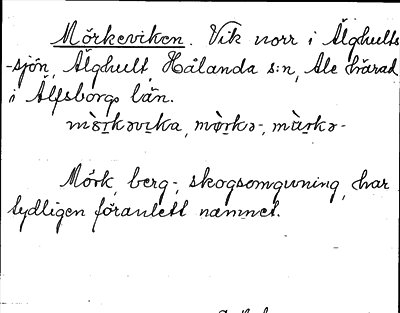 Mörkeviken. Vik norr i Älghults-
-sjön, Älghult, Hålanda s:n, Ale härad
i Älfsborgs län.
Mörk, berg-, skogsomgivning, har
tydligen föranlett namnet.